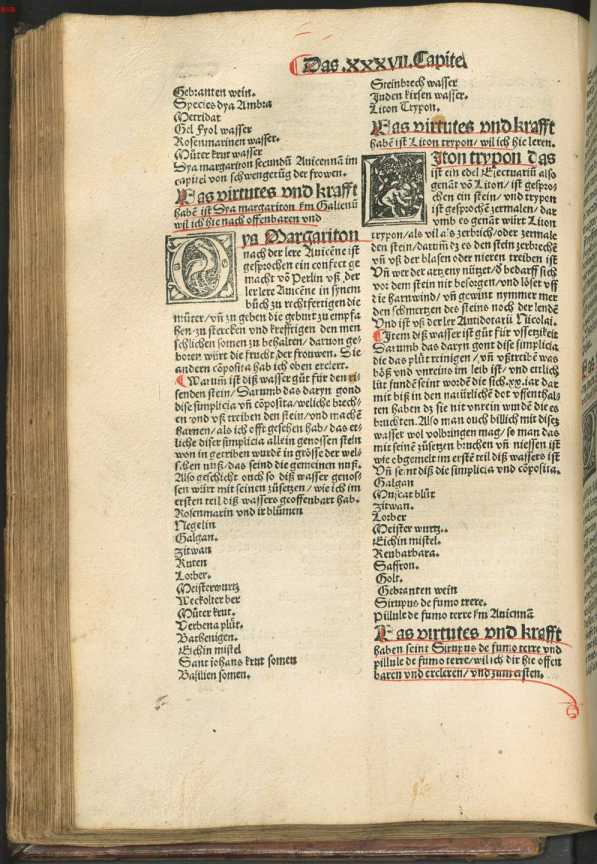 Das .XXXVII. Capitel
Gebranten wein.
Species dya Ambra
Metridat
Gel fyol wasser
Rosenmarinen wasser.
Müter krut wasser
Dya margariton secundū Auicennam in
capitel von schwengerūg der frowen.
Das virtutes vnd krafft
habē ist Dya margariton km Galienū
wil ich hie nach offenbaren vnd
Dya Margariton
nach der lere Auicēne ist
gesprochen ein confect ge
macht vō Perlin vß der
ler lere Auicēne in synem
būch zu rechtfertigen die
müter/ vn̄ zu geben die geburt zu empfa
hen·zu stercken vnd kreffrigen den men
schlichen somen zu behalten/ daruon ge-
boren würt die frucht der frouwen. Die
andern cōposita hab ich oben erclert.
Warum̄ ist diß wasser güt für den ri-
senden stein/ Darumb das daryn gond
dise simplicia vn̄ cōposita/weliche brech-
en vnd vß treiben den stein/vnd machē
harnen/ als ich offt gesehen hab/ das et-
liche diser simplicia allein genossen stein
von in getriben wurdē in grösse der wel-
schen nuß/das seind die gemeinen nuß.
Also geschicht ouch so diß wasser genos-
sen würt mit seinen züsetzen/ wie ich im
ersten teil diß wassers geoffenbart hab.
Rosenmarin vnd ir blümen
Negelin
Galgan.
Zitwan
Ruten
Lorber.
Meisterwurtz
Weckolter ber
Müter krut.
Verbena plüt.
Bathenigen.
Eichin mistel
Sant iohans krut somen
Basilien somen.
Steinbrech wasser
Juden kirsen wasser.
Liton Trypon.
Das virtutes vnd krafft
habē ist Liton trypon/ wil ich hie leren.
Liton trypon das
ist ein edel Electuariū also
genāt vō Liton/ ist gespro-
chen ein stein/ vnd trypon
ist gesprochē zermalen/ dar
vmb es genāt würt Liton
trypon/als vil als zerbrich/oder zermale
den stein/darum̄ dz es den stein zerbrechē
vn̄ vß der blasen oder nieren treiben ist
Vn̄ wer der artzeny nützet/d bedarff sich
vor dem stein nit besorgen/vnd löset vff
die harnwind/ vn̄ gewint nymmer mer
den schmertzen des steins noch der lendē
Vnd ist vß der ler Antidotarii Nicolai.
Item diß wasser ist güt für vssetzikeit
Darumb das daryn gont dise simplicia
die das plüt reinigen/ vn̄ vßtreibē was
böß vnd vnreins im leib ist/ vnd ettlich
lüt fundē seint wordē die sich.xx.iar dar
mit biß in den natürlichē dot vffenthal-
ten haben dz sie nit vnrein wurdē die es
bruchten. Also man ouch billich mit disez
wasser wol volbringen mag/ so man das
mit seinē züsetzen bruchen vn̄ niessen ist
wie obgemelt im erstē teil diß wassers ist
Vn̄ seint diß die simplicia vnd cōposita.
Galgan
Muscat blüt
Zitwan.
Lorber
Meister wurtz.
Eichin mistel.
Reubarbara.
Saffron.
Golt.
Gebranten wein
Sirupus de fumo terre.
Pillule de fumo terre km Auicennā
Das virtutes vnd krafft
haben seint Sirupus de fumo terre vnd
pillule de fumo terre/wil ich dir hie offen
baren vnd ercleren/ vnd zum ersten.